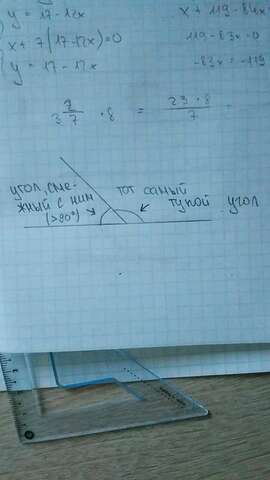 y = 17 - 12x
x + 119 - 84x
x + 7(17-12x)=0
119 - 83x = 0
y = 17 - 12x
-83x = -119
3 2/7 · 8 = 23 · 8 / 7
угол, сме-
жный с ним
(>90°)
тот самый
тупой угол